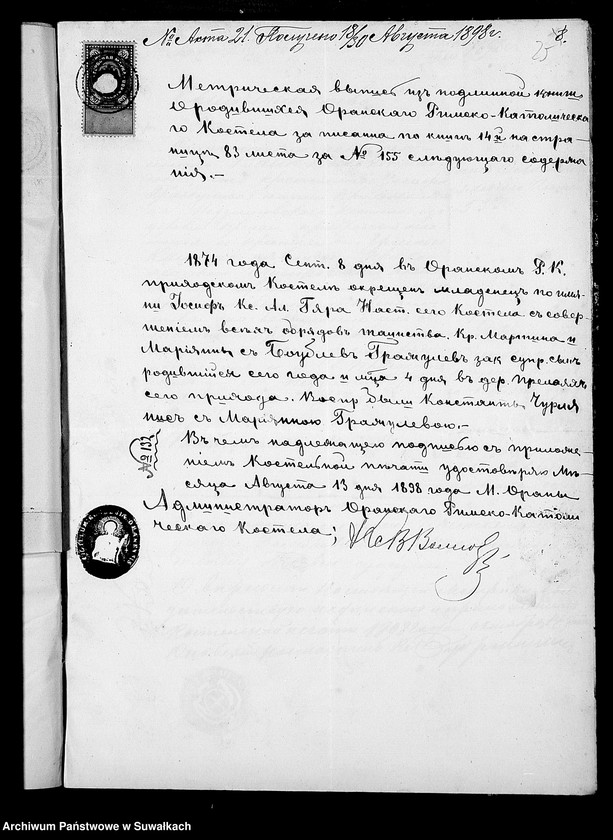 № Акта 21. Получено 18/30 Августа 1898 г.
25 8.
Метрическая выпись изъ подлинной книги
О родившихся Оранскаго Римско-Католическа
го Костела за писанна по книгѣ 14й на стра-
ницѣ 83 листа за № 155 слѣдующаго содержа
нія.-
1874 года Сент. 8 дня въ Оранскомъ Р. К.
приходскомъ Костелѣ окрещенъ младенецъ по име-
ни Іосифъ Кс. Ал. Гяра Наст. сего Костела съ совер
шеніемъ всѣхъ обрядовъ таинства. Кр. Мартина и
Маріянны съ Боублевъ Грамулевъ зак. супр. сынъ
родившійся сего года и м-ца 4 дня въ дер.
сего прихода. Воспр. были Константъ Чурля
нисъ съ Маріянною Грамулевою.-
№ 132
Въ чемъ надлежащею подписью съ приложе-
ніемъ Костельной печати удостовѣряю Мѣ-
сяца Августа 13 дня 1898 года М. Ораны
Администраторъ Оранскаго Римско-Католи
ческаго Костела;
Archiwum Państwowe w Suwałkach